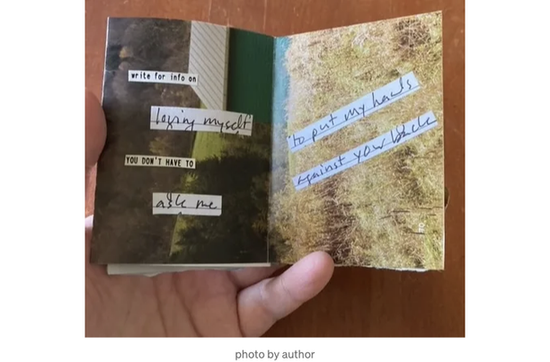 write for info on
myself
YOU DON'T HAVE TO
ask me
to put my hands
against your back
photo by author